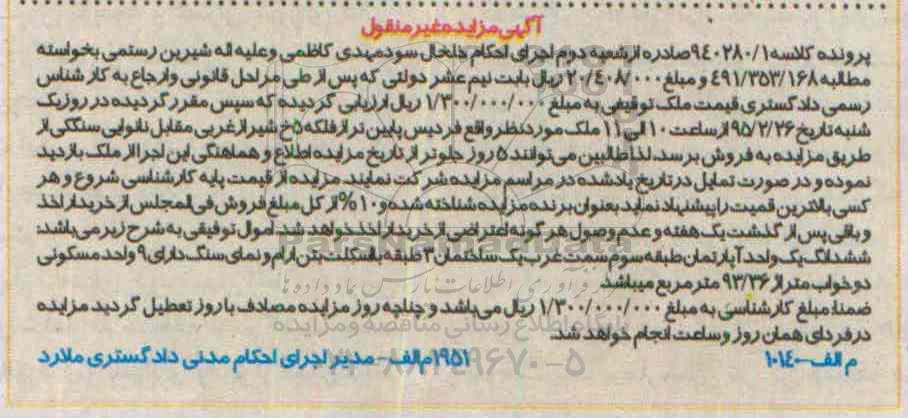 آگهی مزایده غیر منقول
پرونده کلاسه ۹۴۰۲۸۰/۱ صادره از شعبه دوم اجرای احکام خلخال سود مهدی کاظمی و علیه اله شیرین رستمی بخواسته
مطالبه ۴۹۱/۳۵۳/۱۶۸ و مبلغ ۲۰/۴۰۸/۰۰۰ ریال بابت نیم عشر دولتی که پس از طی مراحل قانونی و ارجاع به کارشناس
رسمی دادگستری قیمت ملک توقیفی به مبلغ ۱/۳۰۰/۰۰۰/۰۰۰ ریال ارزیابی گردیده که سپس مقرر گردیده در روز یک
شنبه تاریخ ۹۵/۲/۲۶ از ساعت ۱۰ الی ۱۱ ملک مورد نظر واقع فردیس پایین تر از فلکه ۵ خ شیراز غربی مقابل نانوایی سنگکی از
طریق مزایده به فروش برسد، لذا طالبین می توانند ۵ روز جلوتر از تاریخ مزایده اطلاع و هماهنگی این اجرا از ملک بازدید
نموده و در صورت تمایل در تاریخ یادشده در مراسم مزایده شرکت نمایند. مزایده از قیمت پایه کارشناسی شروع و هر
کسی بالاترین قمیت را پیشنهاد نماید بعنوان برنده مزایده شناخته شده و ۱۰% از کل مبلغ فروش فی المجلس از خریدار اخذ
و باقی پس از گذشت یک هفته و عدم وصول هر گونه اعتراضی از خریدار اخذ خواهد شد. اموال توقیفی به شرح زیر می باشد:
ششدانگ یک واحد آپارتمان طبقه سوم سمت غرب یک ساختمان ۳ طبقه با اسکلت بتن آرام و نمای سنگ دارای ۹ واحد مسکونی
دو خواب متراژ ۹۳/۳۶ متر مربع میباشد
ضمنا: مبلغ کارشناسی به مبلغ ۱/۳۰۰/۰۰۰/۰۰۰ ریال می باشد و چنانچه روز مزایده مصادف با روز تعطیل گردید مزایده
در فردای همان روز و ساعت انجام خواهد شد.
م الف-۱۰۱۴۰ ۱۹۵۱/م الف- مدیر اجرای احکام مدنی دادگستری ملارد
ParsNamadData